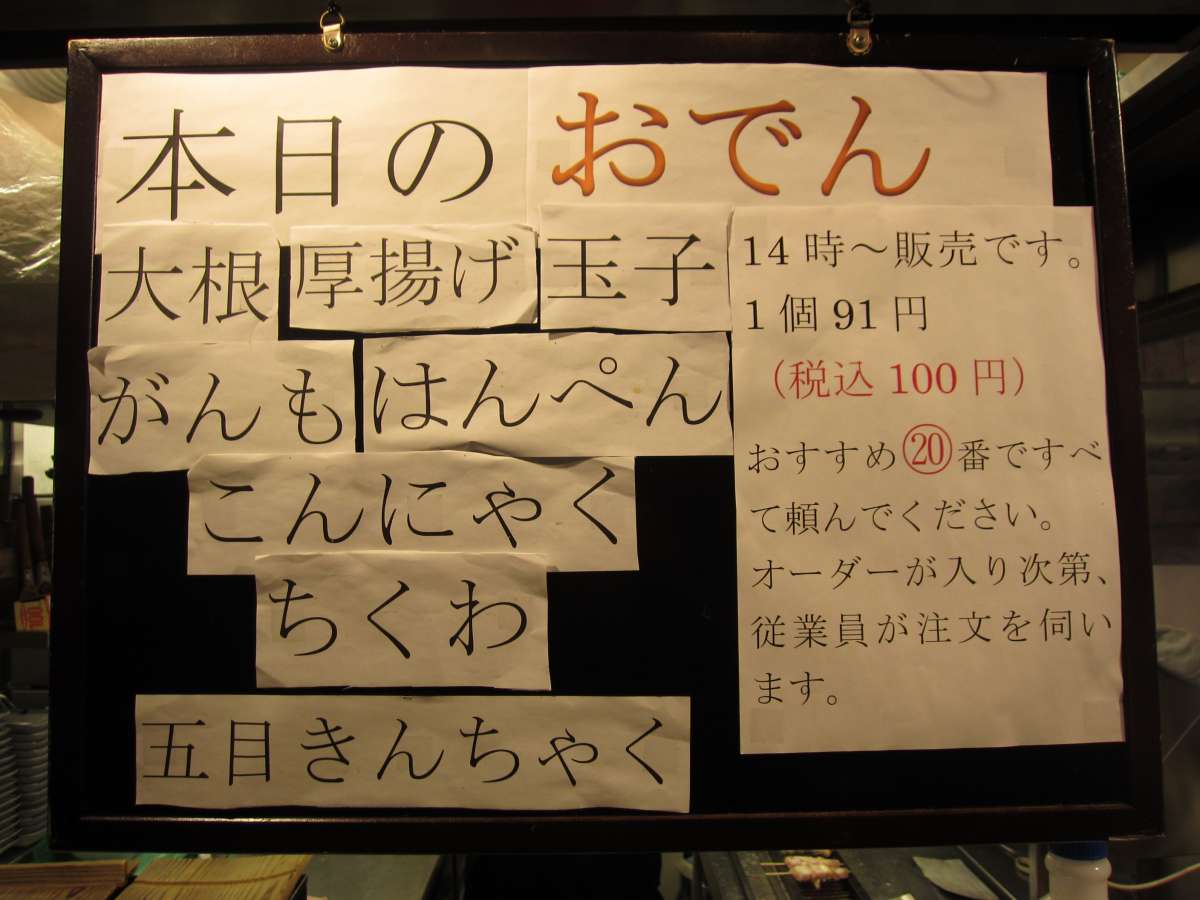 本日のおでん
大根 厚揚げ 玉子
がんも はんぺん
こんにゃく
ちくわ
五目きんちゃく
14時～販売です。
1個91円
（税込100円）
おすすめ⑳番ですべ
て頼んでください。
オーダーが入り次第、
従業員が注文を伺い
ます。